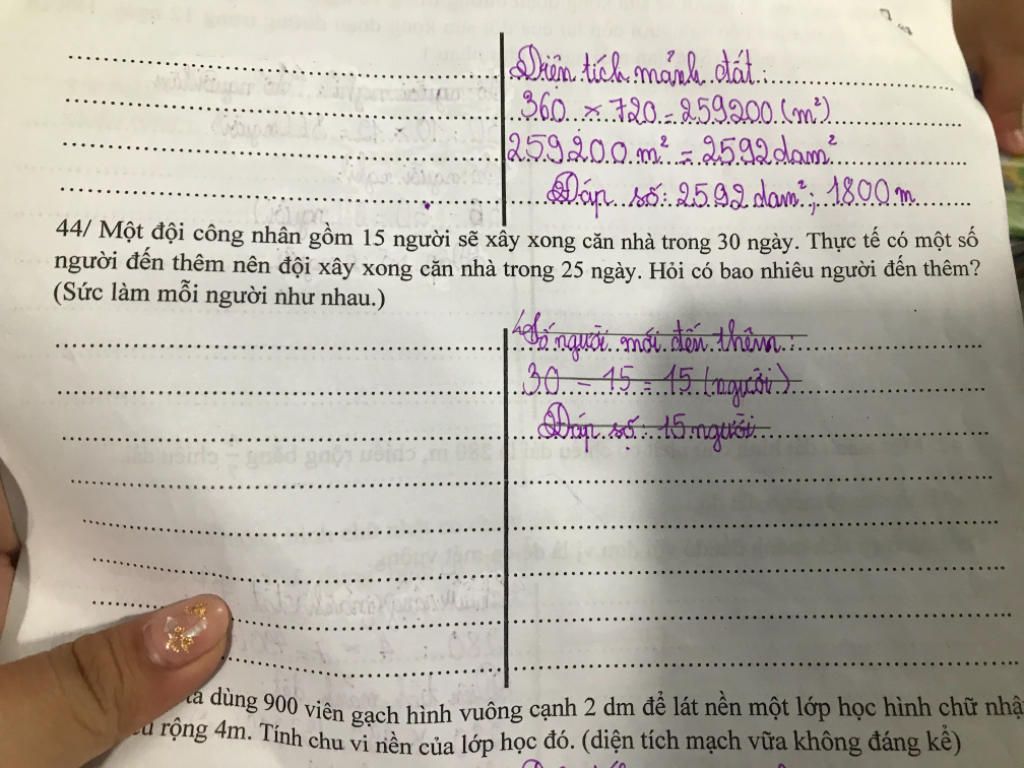 Diện tích mảnh đất:
360 × 720 = 259200 (m²)
259200 m² = 2592 dam²
Đáp số: 2592 dam²; 1800 m
44/ Một đội công nhân gồm 15 người sẽ xây xong căn nhà trong 30 ngày. Thực tế có một số
người đến thêm nên đội xây xong căn nhà trong 25 ngày. Hỏi có bao nhiêu người đến thêm?
(Sức làm mỗi người như nhau.)
Số người mới đến thêm:
30 - 15 = 15 (người)
Đáp số: 15 người
dùng 900 viên gạch hình vuông cạnh 2 dm để lát nền một lớp học hình chữ nhậ
rộng 4m. Tính chu vi nền của lớp học đó. (diện tích mạch vữa không đáng kể)